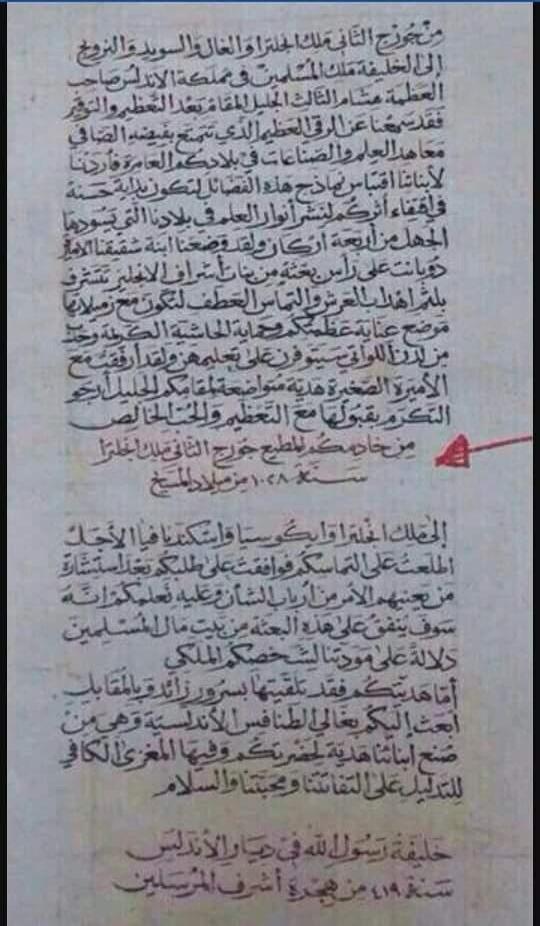 من جورج الثاني ملك انجلترا والغال والسويد والنرويج
إلى الخليفة ملك المسلمين في مملكة الاندلس صاحب
العظمة هشام الثالث الجليل المقام بعد التعظيم والتوقير
فقد سمعنا عن الرقي العظيم الذي تتمتع بفيضه الصافي
معاهد العلم والصناعات في بلادكم العامرة فأردنا
لأبنائنا اقتباس نماذج هذه الفضائل لتكون بداية حسنة
في إقتفاء أثركم لنشر أنوار العلم في بلادنا التي يسودها
الجهل من أربعة أركان ولقد وضعنا ابنة شقيقنا الأميرة
دوبانت على رأس بعثة من بنات أشراف الانجليز تتشرف
بلثم أهداب العرش والتماس العطف لتكون مع زميلاتها
موضع عناية عظمتكم وحماية الحاشية الكريمة وحدب
من لدن اللواتي سيتوفرن على تعليمهن ولقد أرفقت مع
الأميرة الصغيرة هدية متواضعة لمقامكم الجليل أرجو
التكرم بقبولها مع التعظيم والحب الخالص
من خادمكم المطيع جورج الثاني ملك انجلترا
سنة ١٠٢٨ من ميلاد المسيح
إلى ملك انجلترا وايكوسيا واسكندنيافيا الأجل
اطلعت على التماسكم فوافقت على طلبكم بعد استشارة
من يعنيهم الأمر من أرباب الشأن وعليه نعلمكم انه
سوف ينفق على هذه البعثة من بيت مال المسلمين
دلالة على مودتنا لشخصكم الملكي
أما هديتكم فقد تلقيتها بسرور زائد وبالمقابل
أبعث إليكم بغالي الطنافس الأندلسية وهي من
صنع أبنائنا هدية لحضرتكم وفيها المغزى الكافي
للتدليل على التفاتتنا ومحبتنا والسلام
خليفة رسول الله في ديار الأندلس
سنة ٤١٩ من هجرة أشرف المرسلين